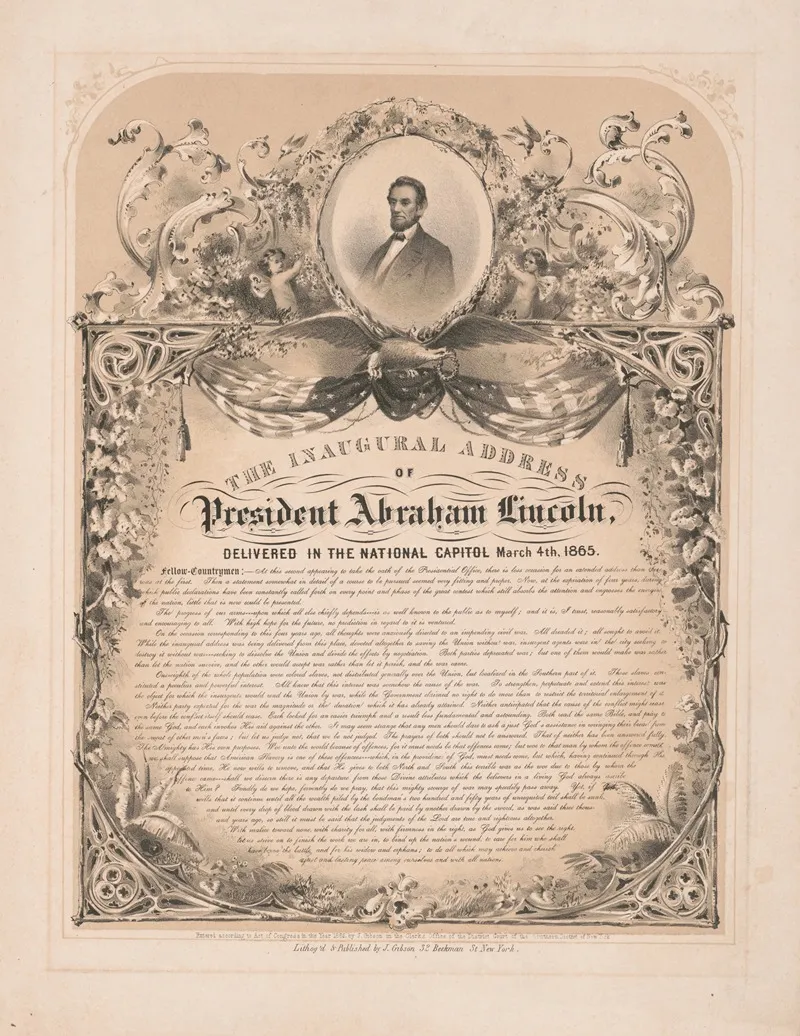 THE INAUGURAL ADDRESS
OF
President Abraham Lincoln,
DELIVERED IN THE NATIONAL CAPITOL March 4th, 1865.
Fellow-Countrymen:—At this second appearing to take the oath of the Presidential Office, there is less occasion for an extended address than there
was at the first. Then a statement somewhat in detail of a course to be pursued seemed very fitting and proper. Now, at the expiration of four years, during
which public declarations have been constantly called forth on every point and phase of the great contest which still absorbs the attention and engrosses the energies
of the nation, little that is new could be presented.
The progress of our arms—upon which all else chiefly depends—is as well known to the public as to myself; and it is, I trust, reasonably satisfactory
and encouraging to all. With high hope for the future, no prediction in regard to it is ventured.
On the occasion corresponding to this four years ago, all thoughts were anxiously directed to an impending civil war. All dreaded it; all sought to avoid it.
While the inaugural address was being delivered from this place, devoted altogether to saving the Union without war, insurgent agents were in the city seeking to
destroy it without war—seeking to dissolve the Union and divide the effects by negotiation. Both parties deprecated war; but one of them would make war rather
than let the nation survive, and the other would accept war rather than let it perish, and the war came.
One-eighth of the whole population were colored slaves, not distributed generally over the Union, but localized in the Southern part of it. These slaves con-
stituted a peculiar and powerful interest. All knew that this interest was somehow the cause of the war. To strengthen, perpetuate and extend this interest was
the object for which the insurgents would rend the Union by war, while the Government claimed no right to do more than to restrict the territorial enlargement of it.
Neither party expected for the war the magnitude or the duration which it has already attained. Neither anticipated that the cause of the conflict might cease
even before the conflict itself should cease. Each looked for an easier triumph and a result less fundamental and astounding. Both read the same Bible, and pray to
the same God, and each invokes His aid against the other. It may seem strange that any men should dare to ask a just God's assistance in wringing their bread from
the sweat of other men's faces; but let us judge not, that we be not judged. The prayers of both should not be answered. That of neither has been answered fully.
The Almighty has His own purposes. Woe unto the world because of offences, for it must needs be that offences come; but woe to that man by whom the offence cometh.
we shall suppose that American Slavery is one of these offences—which, in the providence of God, must needs come, but which, having continued through His
appointed time, He now wills to remove, and that He gives to both North and South this terrible war as the woe due to those by whom the
offence came—shall we discern there is any departure from those Divine attributes which the believers in a living God always ascribe
to Him? Fondly do we hope, fervently do we pray, that this mighty scourge of war may speedily pass away. Yet, if God
wills that it continue until all the wealth piled by the bondman's two hundred and fifty years of unrequited toil shall be sunk,
and until every drop of blood drawn with the lash shall be paid by another drawn by the sword, as was said three thous-
and years ago, so still it must be said that the judgments of the Lord are true and righteous altogether.
With malice toward none, with charity for all, with firmness in the right, as God gives us to see the right,
let us strive on to finish the work we are in, to bind up the nation's wound, to care for him who shall
have borne the battle, and for his widow and orphans; to do all which may achieve and cherish
a just and lasting peace among ourselves and with all nations.
Entered according to Act of Congress in the Year 1865 by J. Gibson in the Clerks Office of the District Court of the Southern District of New York
Lithog'd & Published by J. Gibson 32 Beekman St New York.